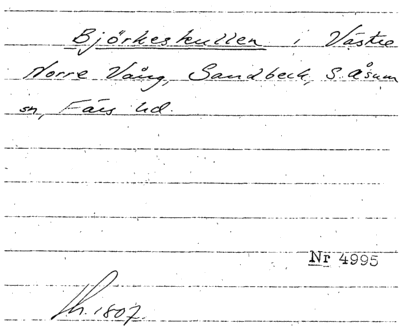 Björkeskullen i Västre
Norre Vång, Sandbeck, S. Åsum
sn, Färs hd.
Nr 4995
Lh. 1807.